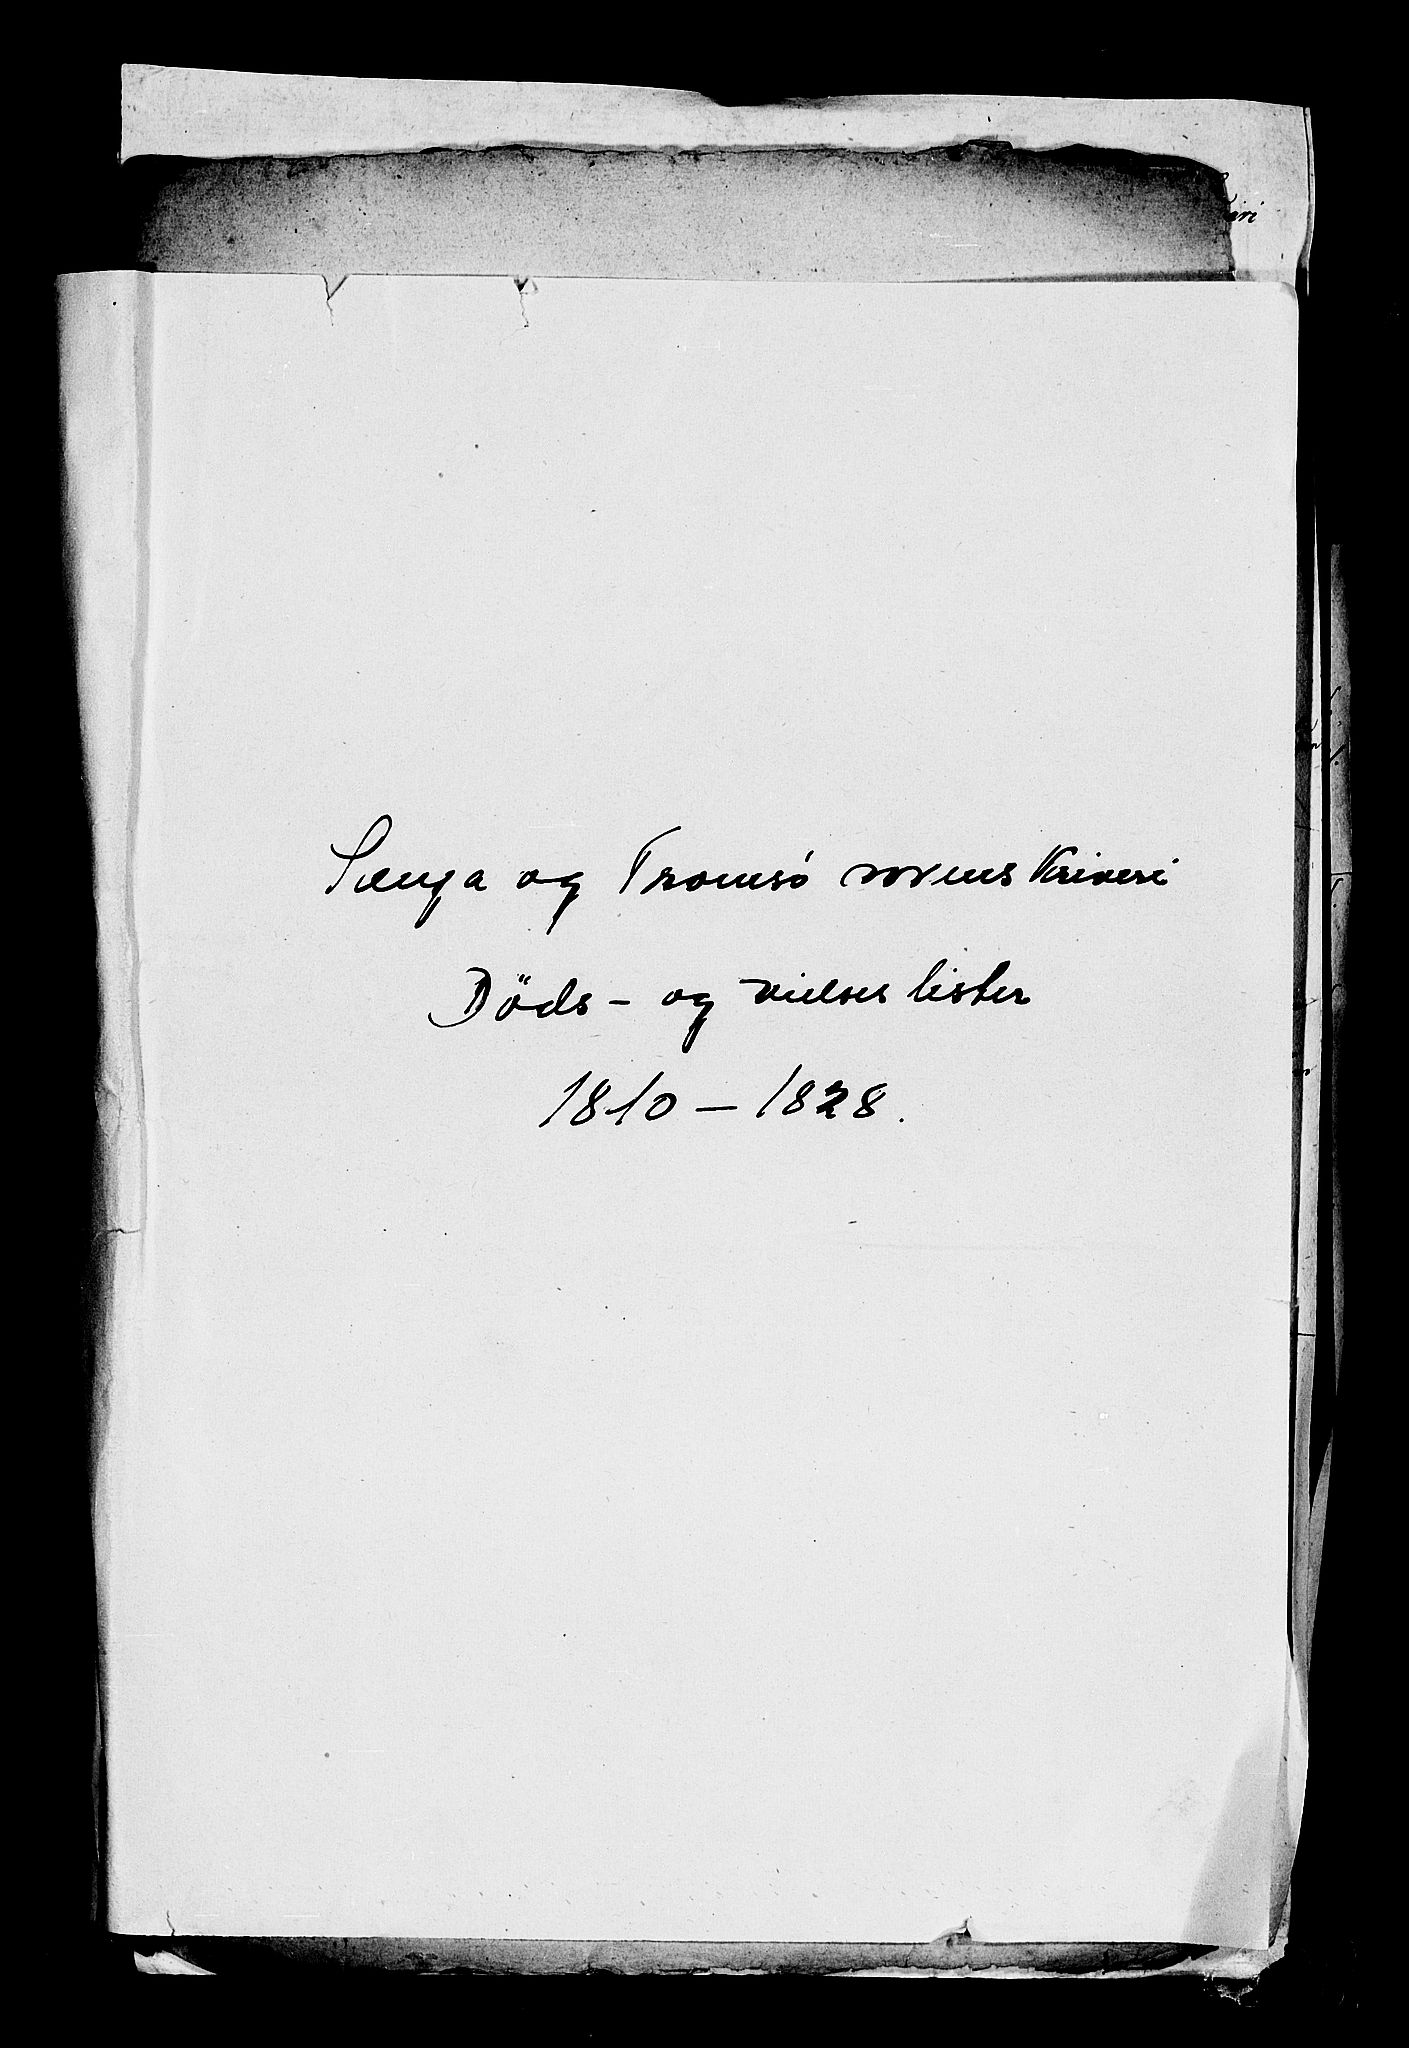 Senja og Tromsö sorenskriveri
Döds- og vielseslister
1810 – 1828.